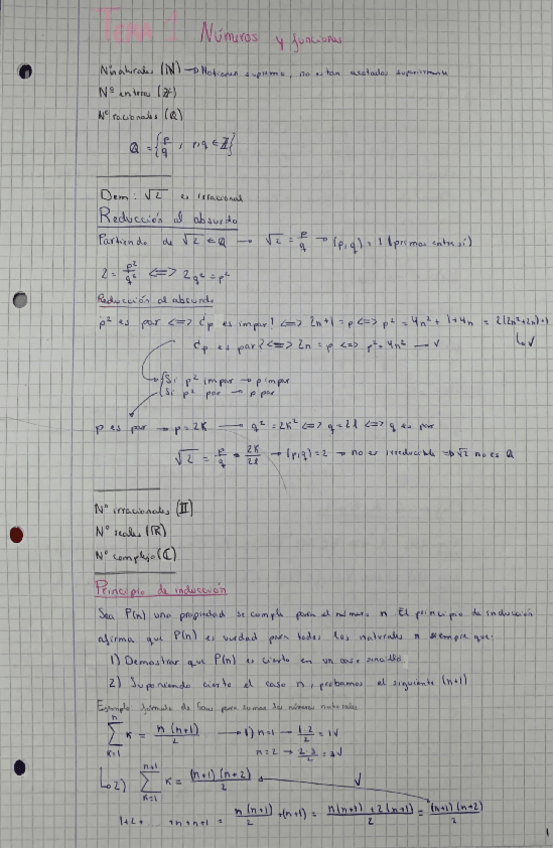 TEMA 1 Números y funciones
Nº naturales (ℕ) → No tienen supremo, no estan acotados superiormente
Nº enteros (ℤ)
Nº racionales (ℚ)
Q = {p/q , p,q ∈ ℤ}
Dem: √2 es irracional
Reducción al absurdo
Partiendo de √2 ∈ Q → √2 = p/q → (p,q) = 1 (primos entre sí)
2 = p²/q² <=> 2q² = p²
Reducción al absurdo
p² es par <=> ¿p es impar? <=> 2n+1 = p <=> p² = 4n² + 1 + 4n = 2(2n²+2n)+1
¿p es par? <=> 2n = p <=> p² = 4n² → √
Si p² impar → p impar
Si p² par → p par
p es par → p = 2K → q² = 2K² <=> q = 2l <=> q es par
√2 = p/q = 2K/2l → (p,q) = 2 → no es irreducible => √2 no es Q
Nº irracionales (𝕀)
Nº reales (ℝ)
Nº complejo (ℂ)
Principio de inducción
Sea P(n) una propiedad se cumple para el número n. El principio de inducción
afirma que P(n) es verdad para todos los naturales n siempre que:
1) Demostrar que P(n) es cierto en un caso sencillo
2) Suponiendo cierto el caso n, probamos el siguiente (n+1)
Ejemplo fórmula de Gauss para sumar los números naturales
∑ K = n(n+1)/2 → 1) n=1 → 1·2/2 = 1 √
n=2 → 2·3/2 = 3 √
2) ∑ K = (n+1)(n+2)/2 √
1+2+ ... +n+n+1 = n(n+1)/2 + (n+1) = n(n+1)+2(n+1)/2 = (n+1)(n+2)/2
1